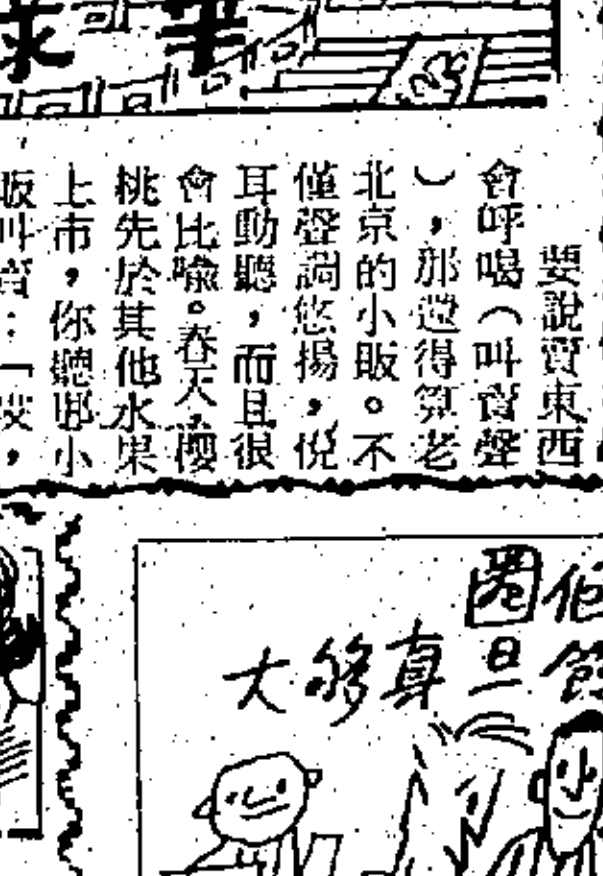 要說賣東西
會呼喝（叫賣聲
），那還得算老
北京的小販。不
僅聲調悠揚，悅
耳動聽，而且很
會比喻。春天，櫻
桃先於其他水果
上市，你聽那小
販叫賣：「哎，
圈旦
真够大